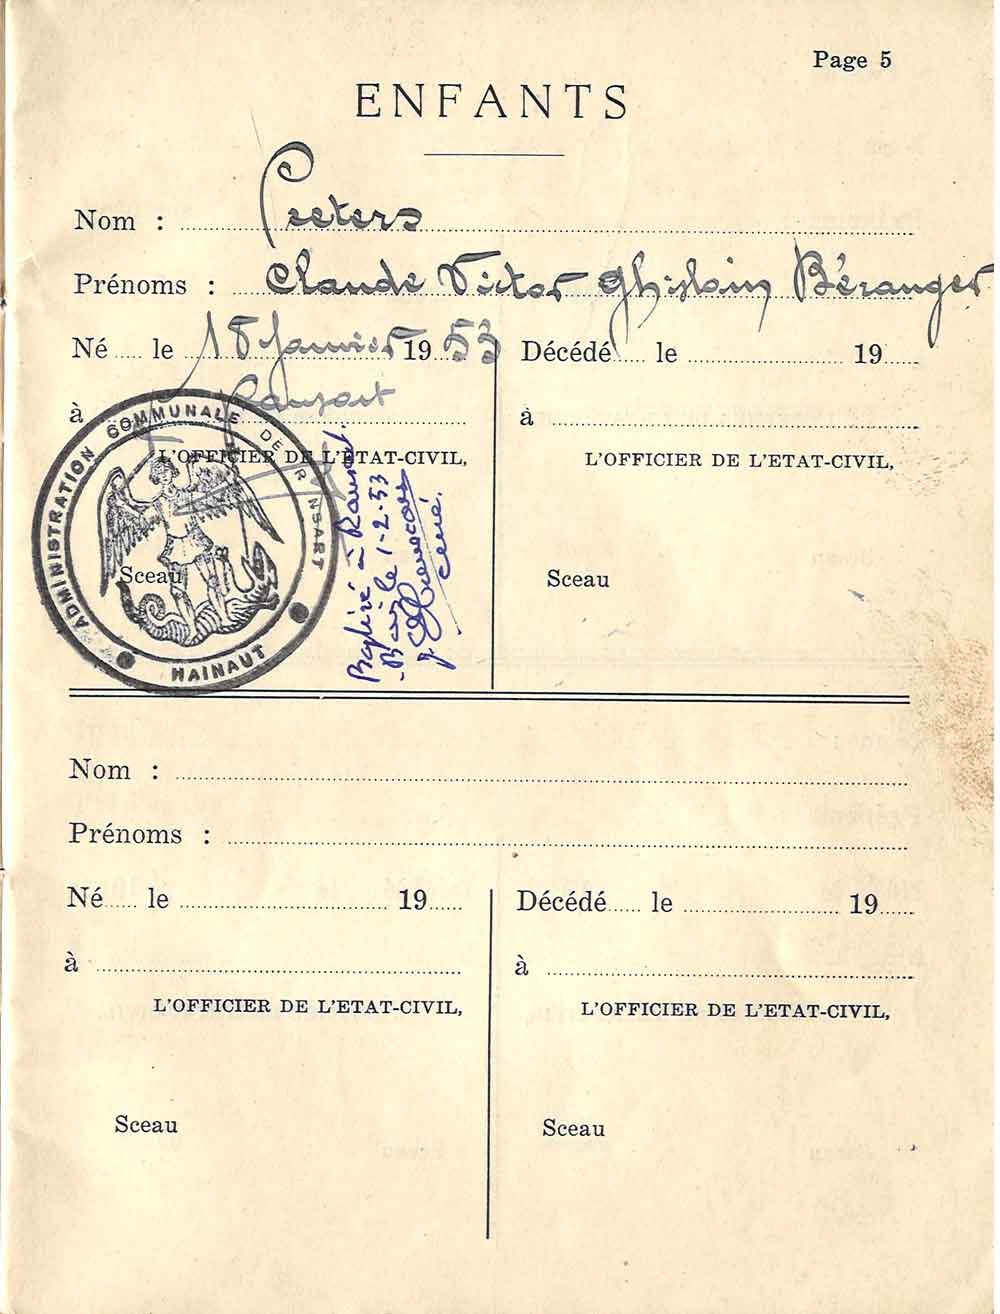 Page 5
ENFANTS
Nom : Peeters
Prénoms : Claude Victor Ghislain Béranger
Né le 18 Janvier 1953
à Ransart
L'OFFICIER DE L'ETAT-CIVIL,
Sceau
ADMINISTRATION COMMUNALE DE RANSART
HAINAUT
Baptisé à Ransart
le 1-2-53
curé.
Décédé le 19
à
L'OFFICIER DE L'ETAT-CIVIL,
Sceau
Nom :
Prénoms :
Né le 19
à
L'OFFICIER DE L'ETAT-CIVIL,
Sceau
Décédé le 19
à
L'OFFICIER DE L'ETAT-CIVIL,
Sceau